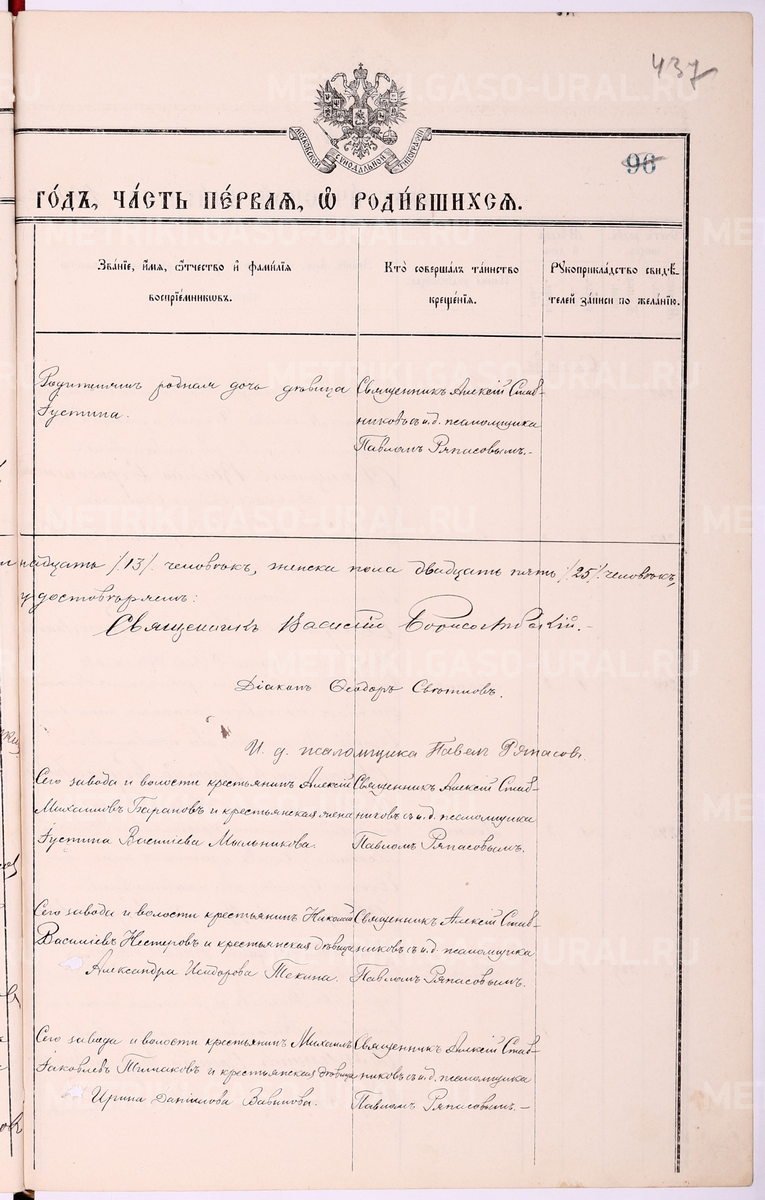 437
96
МОСКОВСКОЙ СѴНОДАЛЬНОЙ ТИПОГРАФІИ
METRIKI.GASO-URAL.RU
ГО́ДЪ, ЧА́СТЬ ПЕ́РВАѦ, Ѡ҆ РОДИ́ВШИХСѦ.
Зва́нїе, и҆́мѧ, ѻ҆́тчество и҆ фами́лїѧ
воспрїе́мниковъ.
Кто̀ соверша́лъ та́инство
креще́нїѧ.
Рꙋкоприкла́дство свидѣ́-
телей за́писи по жела́нїю.
родная дочь дѣвица
Іустина.
Священникъ Алексій Став-
никовъ съ и.д. псаломщика
Павломъ Ряпасовымъ.-
надцать /13/. человѣкъ, женска пола двадцать пять /25/. человѣкъ,
удостовѣряемъ:
Священникъ Василій Борисоглѣбскій.-
Діаконъ Ѳеодоръ
И. д. псаломщика Павелъ Ряпасовъ.
Сего завода и волости крестьянинъ Алексій
Михаиловъ Барановъ и крестьянская жена
Іустина Василіева Мыльникова.
Священникъ Алексій Став-
никовъ съ и.д. псаломщика
Павломъ Ряпасовымъ.
Сего завода и волости крестьянинъ Николай
Василіевъ Нестеровъ и крестьянская дѣвица
Александра Исидорова Текина.
Священникъ Алексій Став-
никовъ съ и.д. псаломщика
Павломъ Ряпасовымъ.
Сего завода и волости крестьянинъ Михаилъ
Іаковлевъ и крестьянская дѣвица
Ирина Даніилова Вавилова.
Священникъ Алексій Став-
никовъ съ и.д. псаломщика
Павломъ Ряпасовымъ.-